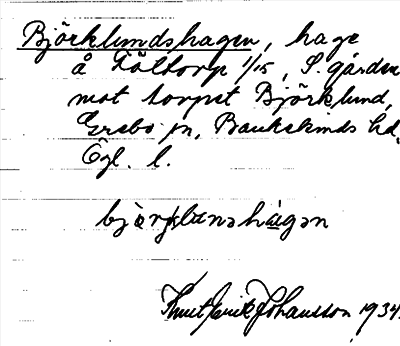 Björklundshagen, hage
å Föltorp 1/15, S. gården
mot torpet Björklund,
Gresbo sn, Bankekinds hd,
Ögl. l.
bjø̀rklunəhàgən
Knut Erik Johansson 1934.